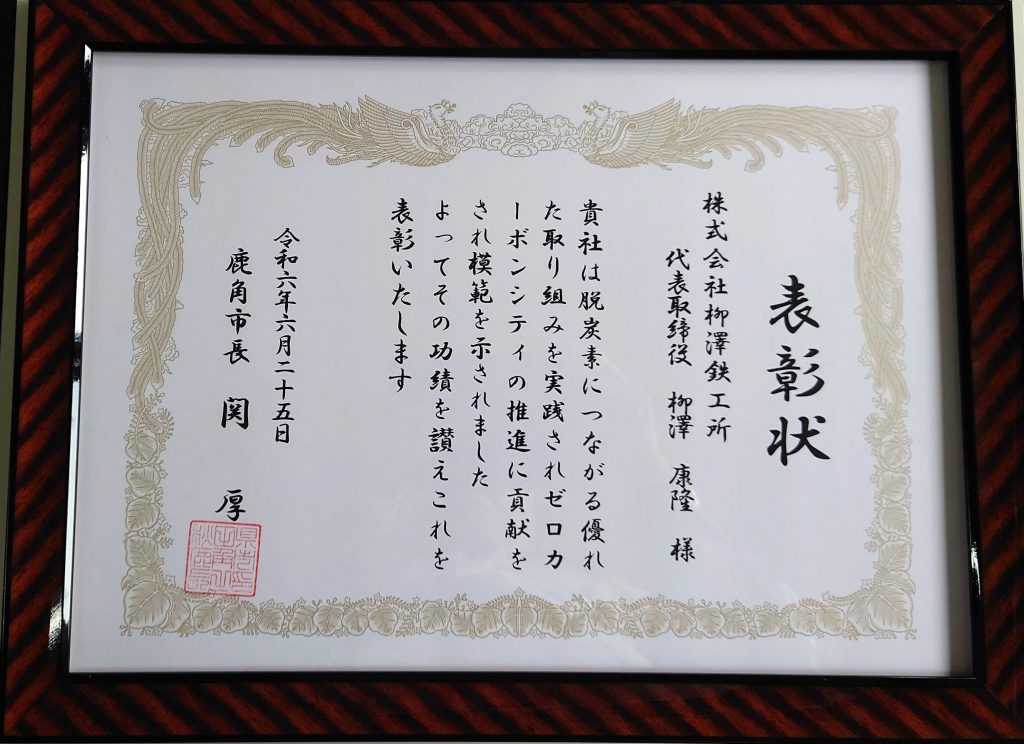 表彰状
株式会社柳澤鉄工所
代表取締役 柳澤 康隆 様
貴社は脱炭素につながる優れ
た取り組みを実践されゼロカ
ーボンシティの推進に貢献を
され模範を示されました
よってその功績を讃えこれを
表彰いたします
令和六年六月二十五日
鹿角市長 関 厚